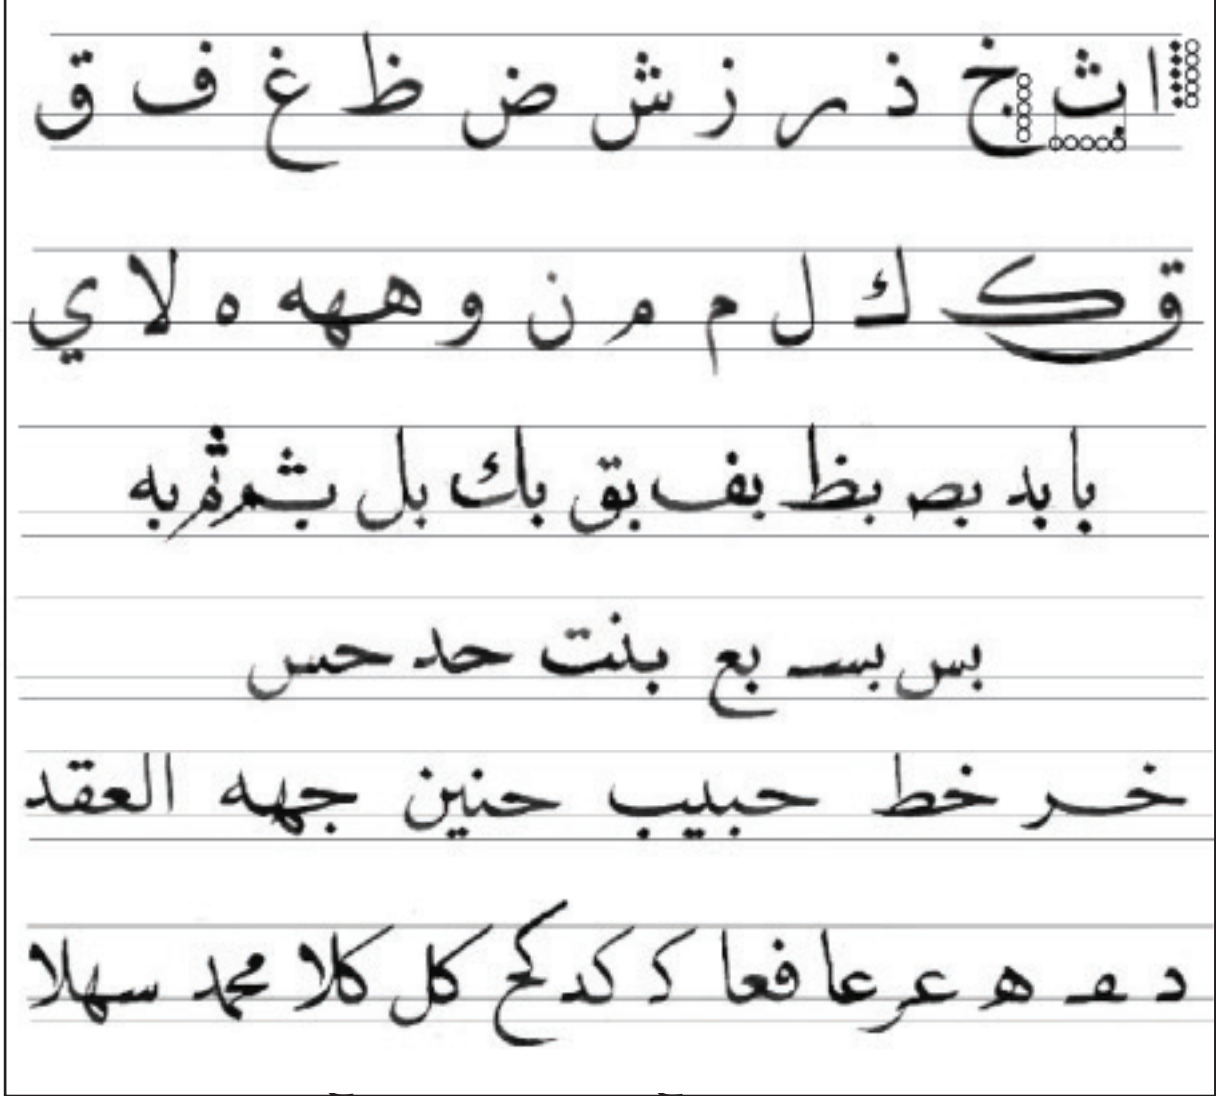 ا ث خ ذ ر ز ش ض ظ غ ف ق
ق ك ك ل م م ن و ههه ه لا ي
با بد بص بظ بف بق باك بل به
بس بسـ بع بنت حد حس
خر خط حبيب حنين جهه العقد
د ه عر عا فعا كد كح كل كلا محمد سهلا